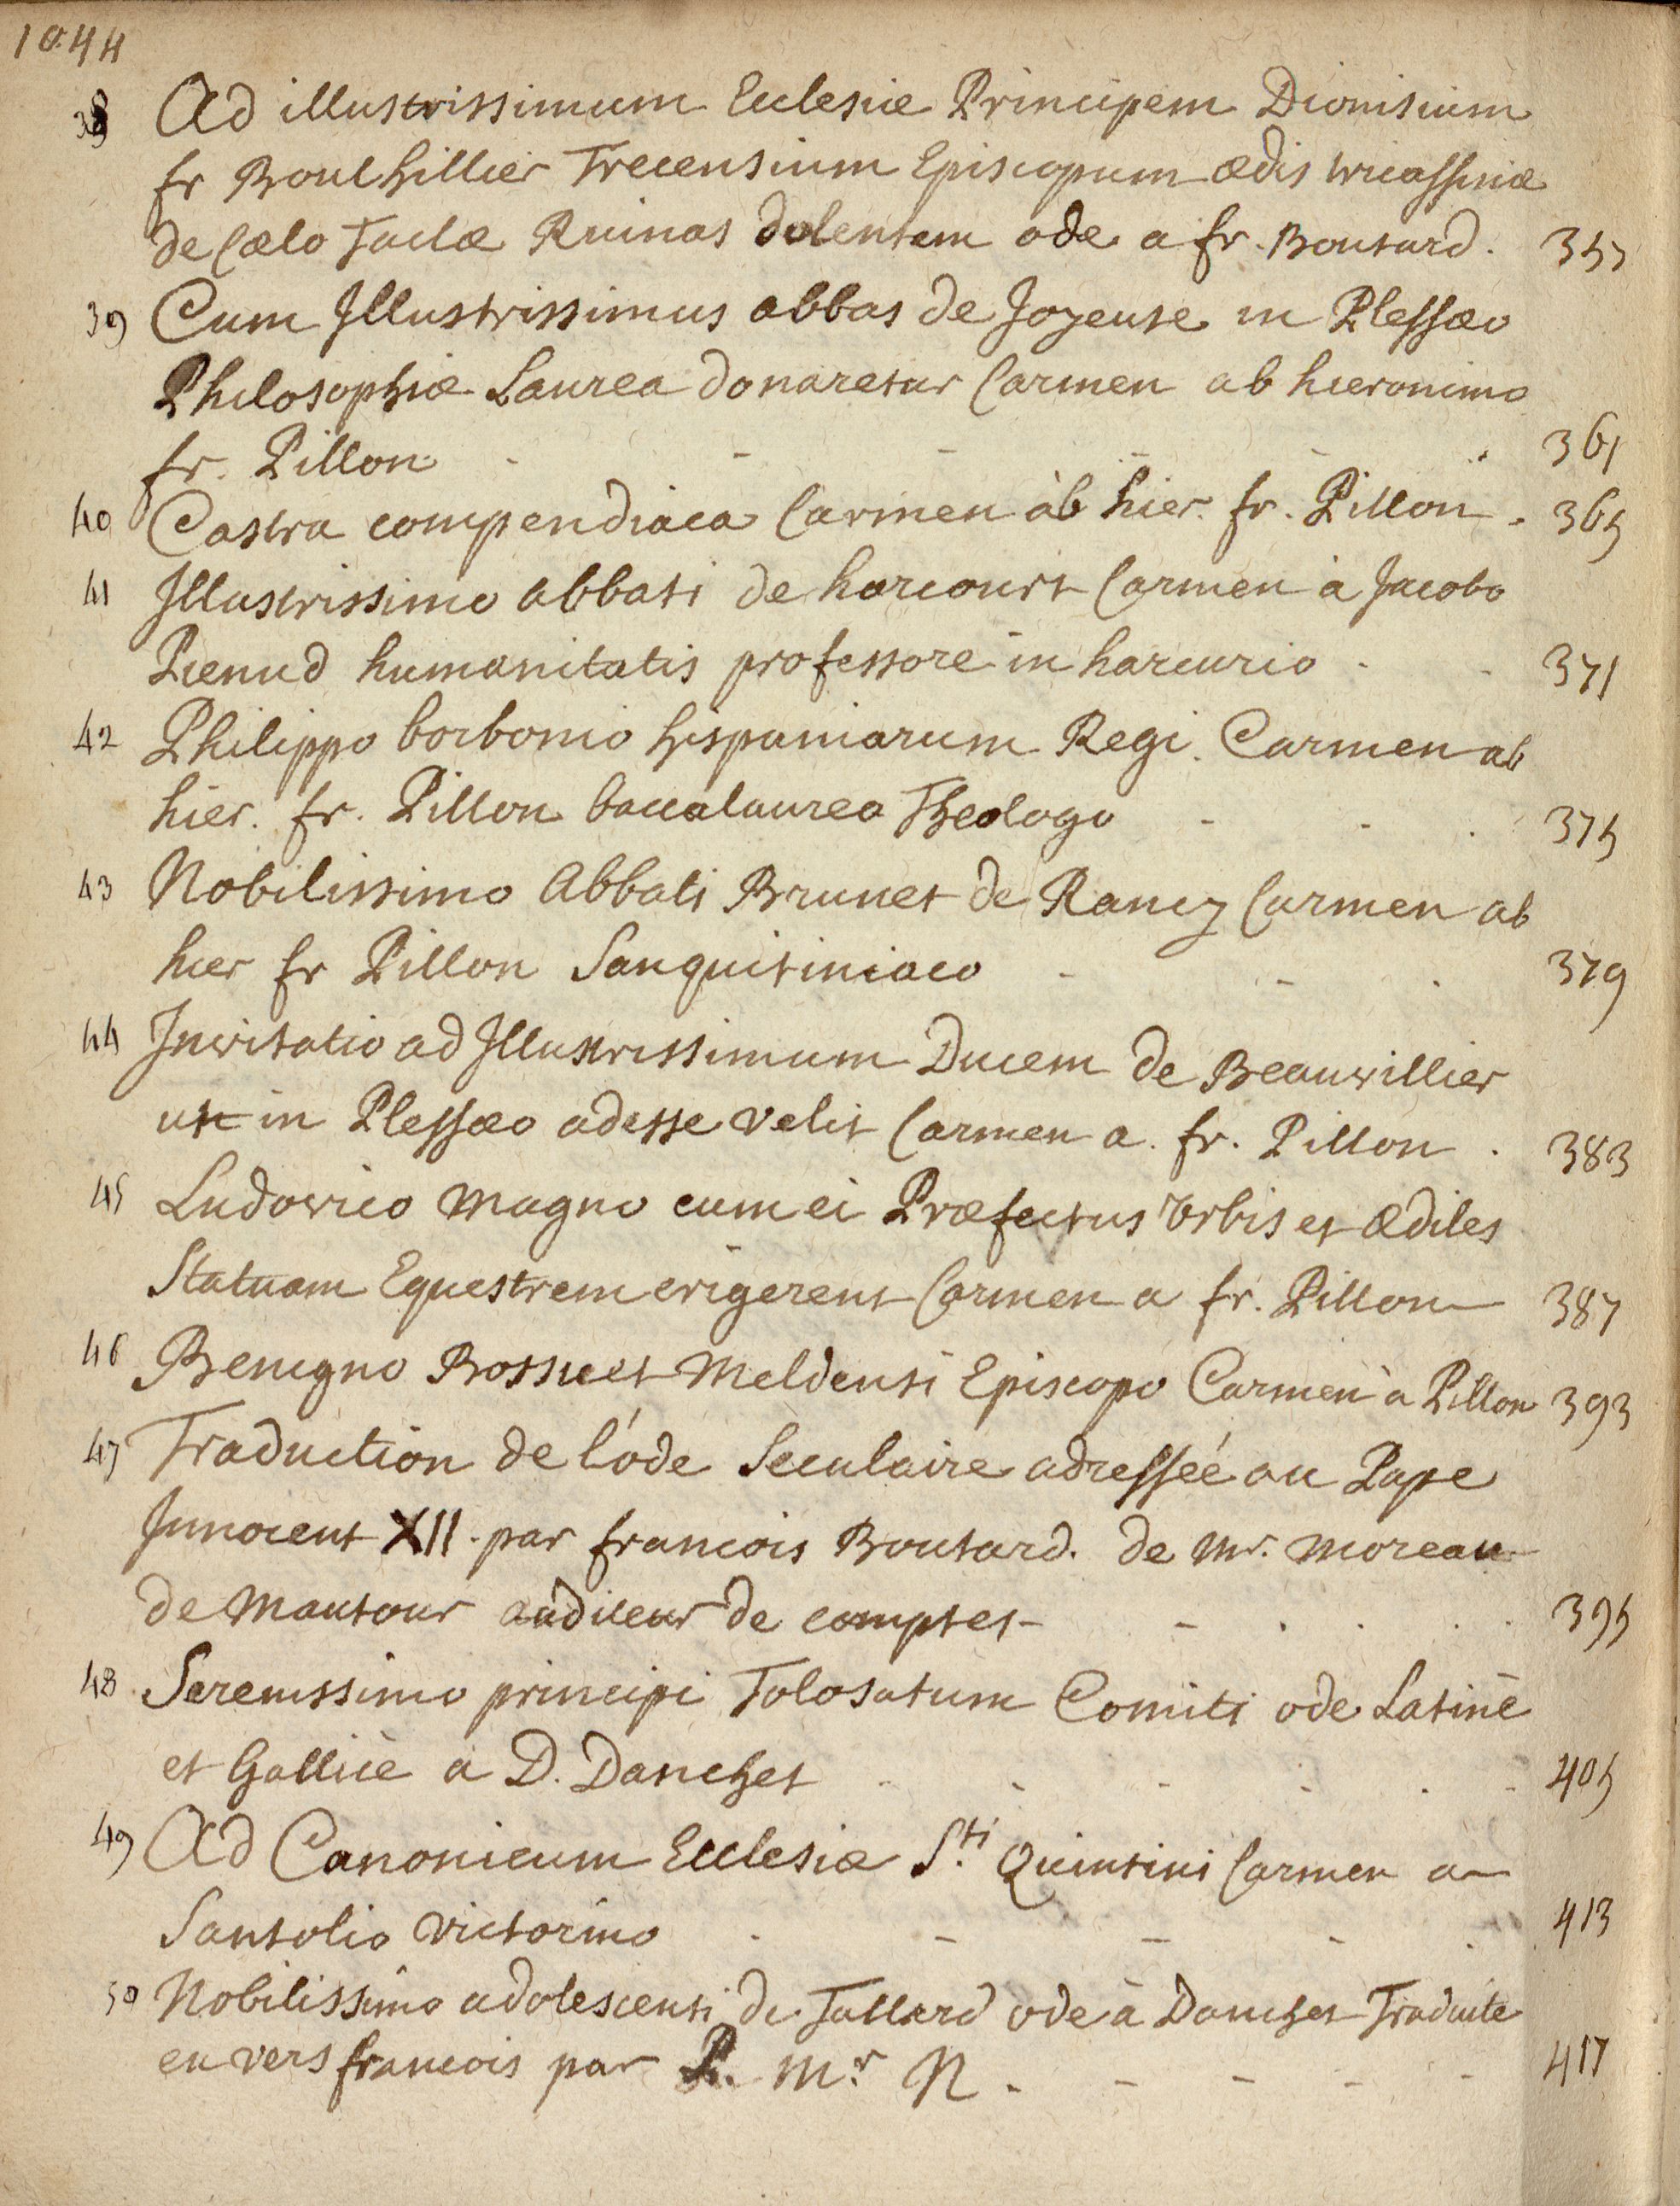 1044
38 Ad illustrissimum Ecclesiæ Principem Dionisium
fr Boulhillier Trecensium Episcopum ædis tricassinæ
de Cælo Tactæ Ruinas dolentem ode a fr. Boutard. 357
39 Cum Illustrissimus abbas de Joyeuse in Plessæo
Philosophiæ Laurea donaretur Carmen ab hieronimo
fr. Pillon - - - - - . 361
40 Castra compendiaca Carmen ab hier. fr. Pillon . 365
41 Illustrissimo abbati de harcourt Carmen a Jacobo
Pienud humanitatis professore in harcurio - - 371
42 Philippo borbonio hispaniarum Regi. Carmen ab
hier. fr. Pillon baccalaureo Theologo - - . 375
43 Nobilissimo Abbati Brunet de Rancy Carmen ab
hier fr Pillon Sanquitiniaco - - . 379
44 Invitatio ad Illustrissimum Ducem de Beauvillier
ut in Plessæo adesse velit Carmen a. fr. Pillon . 383
45 Ludovico magno cum ei Præfectus Vrbis et Ædiles
Statuam Equestrem erigerent Carmen a fr. Pillon 387
46 Benigno Bossuet Meldensi Episcopo Carmen a Pillon 393
47 Traduction de l'ode Seculaire adresseé au Pape
Innocent XII. par francois Boutard. de Mr. Moreau
de Mautour auditeur de comptes - - . . . 395
48 Serenissimo principi Tolosatum Comiti ode Latinè
et Gallicè a D. Danchet - - - - . - 405
49 Ad Canonicum Ecclesiæ S.ti Quintini Carmen a
Santolio victorino . - - - . 413
50 Nobilissimo adolescenti de Tallard ode à Danchet Traduite
en vers francois par P. Mr. N . - - - - 417